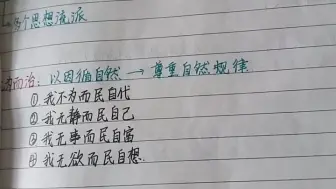 多个思想流派
为而治：以因循自然 → 尊重自然规律
① 我不为而民自代
② 我无静而民自己
③ 我无事而民自富
④ 我无欲而民自想.